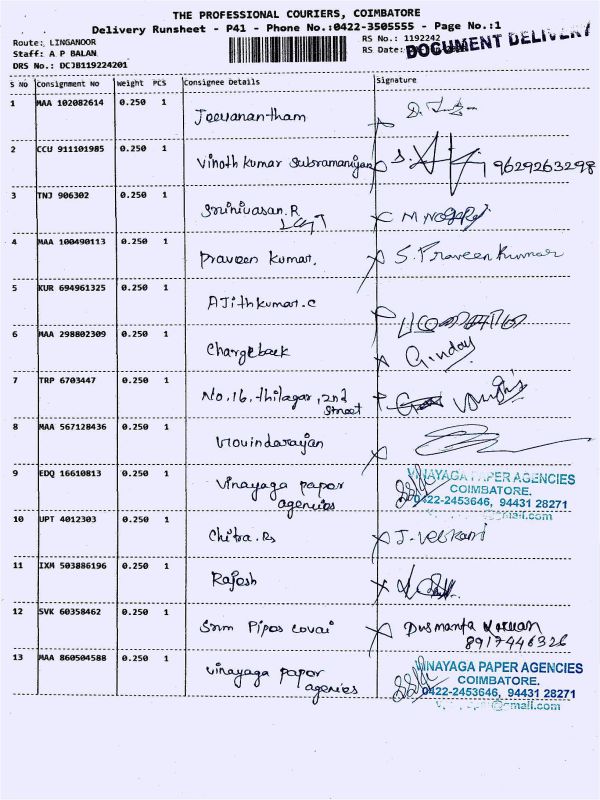 THE PROFESSIONAL COURIERS, COIMBATORE
Delivery Runsheet - P41 - Phone No.:0422-3505555 - Page No.:1
Route: LINGANOOR
RS No.: 1192242
Staff: A P BALAN
RS Date:
DOCUMENT DELIVERY
DRS No.: DCJB119224201
S No Consignment No Weight PCS Consignee Details Signature
1 MAA 102082614 0.250 1 Jeevanantham
2 CCU 911101985 0.250 1 Vinoth kumar Subramaniyan 9629263298
3 TNJ 906302 0.250 1 Srinivasan.R
4 MAA 100490113 0.250 1 Praveen kumar. S. Praveen kumar
5 KUR 694961325 0.250 1 Ajithkumar.c
6 MAA 298802309 0.250 1 Chargeback
7 TRP 6703447 0.250 1 No.16, thilagar, 2nd
Street
8 MAA 567128436 0.250 1
9 EDQ 16610813 0.250 1 Vinayaga papor
agencies
VINAYAGA PAPER AGENCIES
COIMBATORE.
0422-2453646, 94431 28271
10 UPT 4012303 0.250 1 Chitra. Rs
11 IXM 503886196 0.250 1 Rajesh
12 SVK 60358462 0.250 1 Snm Pipes covai Dusmanta
8917446326
13 MAA 860504588 0.250 1 Vinayaga papor
agencies
VINAYAGA PAPER AGENCIES
COIMBATORE.
0422-2453646, 94431 28271